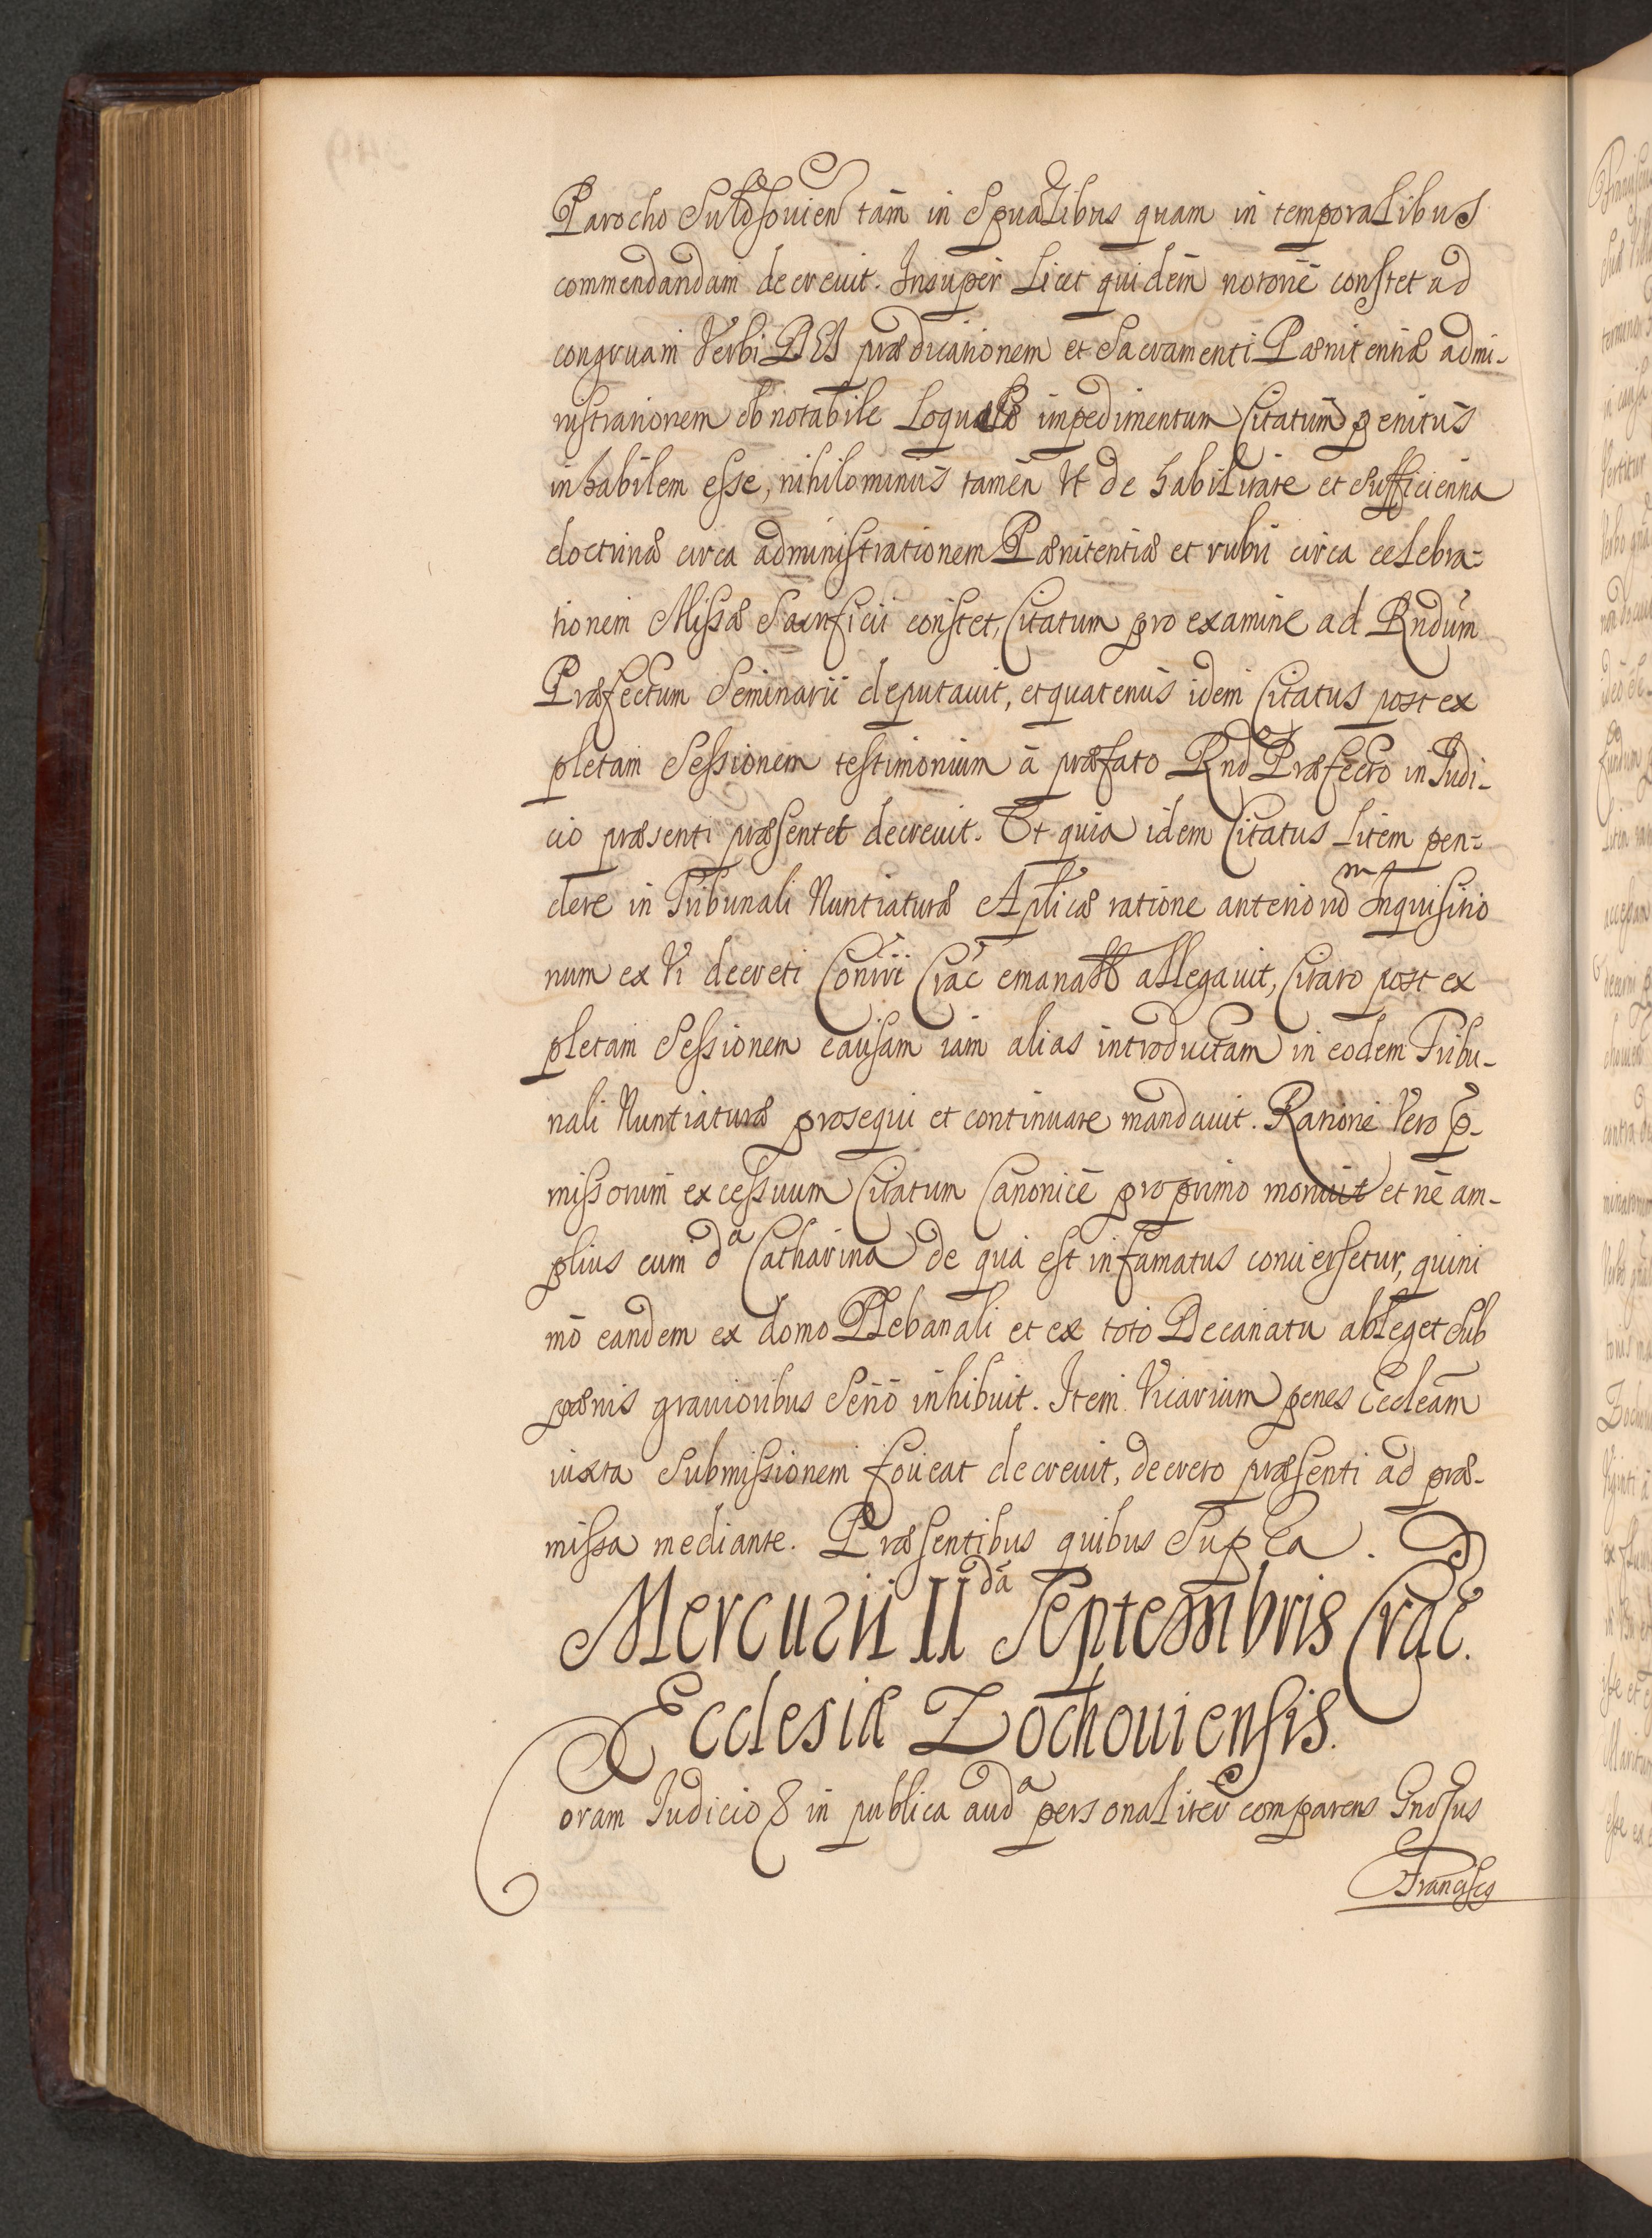 Parocho Sulosouien tam in Spualibus quam in temporalibus
commendandam decreuit. Insuper Licet quidem notorie constet ad
congruam Verbi DEI prædicationem et Sacramenti Pænitentiæ admi-
nistrationem ob notabile Loquelæ impedimentum Citatum penitus
inhabilem esse, nihilominus tamen Vt de habilitate et Sufficientia
doctrinæ circa administrationem Pænitentiæ et rubri circa celebra-
tionem Missæ Sacrificii constet, Citatum pro examine ad Rndum
Præfectum Seminarii deputauit, et quatenus idem Citatus post ex
pletam Sessionem testimonium à præfato Rnd Præfecto in Iudi-
cio præsenti præsentet decreuit. Et quia idem Citatus Litem pen-
dere in Tribunali Nuntiaturæ Aplicæ ratione anteriorum Inquisitio
num ex Vi decreti Conrii Crac emanatæ allegauit, Citato post ex
pletam Sessionem causam iam alias introductam in eodem Tribu-
nali Nuntiaturæ prosequi et continuare mandauit. Rationi Vero p-
missorum excessuum Citatum Canonicè pro primo monuit et nè am-
plius cum da Catharina de qua est infamatus conuersetur, quini
mò eandem ex domo Plebanali et ex toto Decanatu ableget Sub
pænis grauioribus Seriò inhibuit. Item Vicarium penes Eccleam
iuxta Submissionem foueat decreuit, decreto præsenti ad præ-
missa mediante. Præsentibus quibus Supra.
Mercurii II da Septembris Crac.
Ecclesiæ Zochouiensis.
Coram Iudicio & in publica auda personaliter comparens Indsus
Francisco